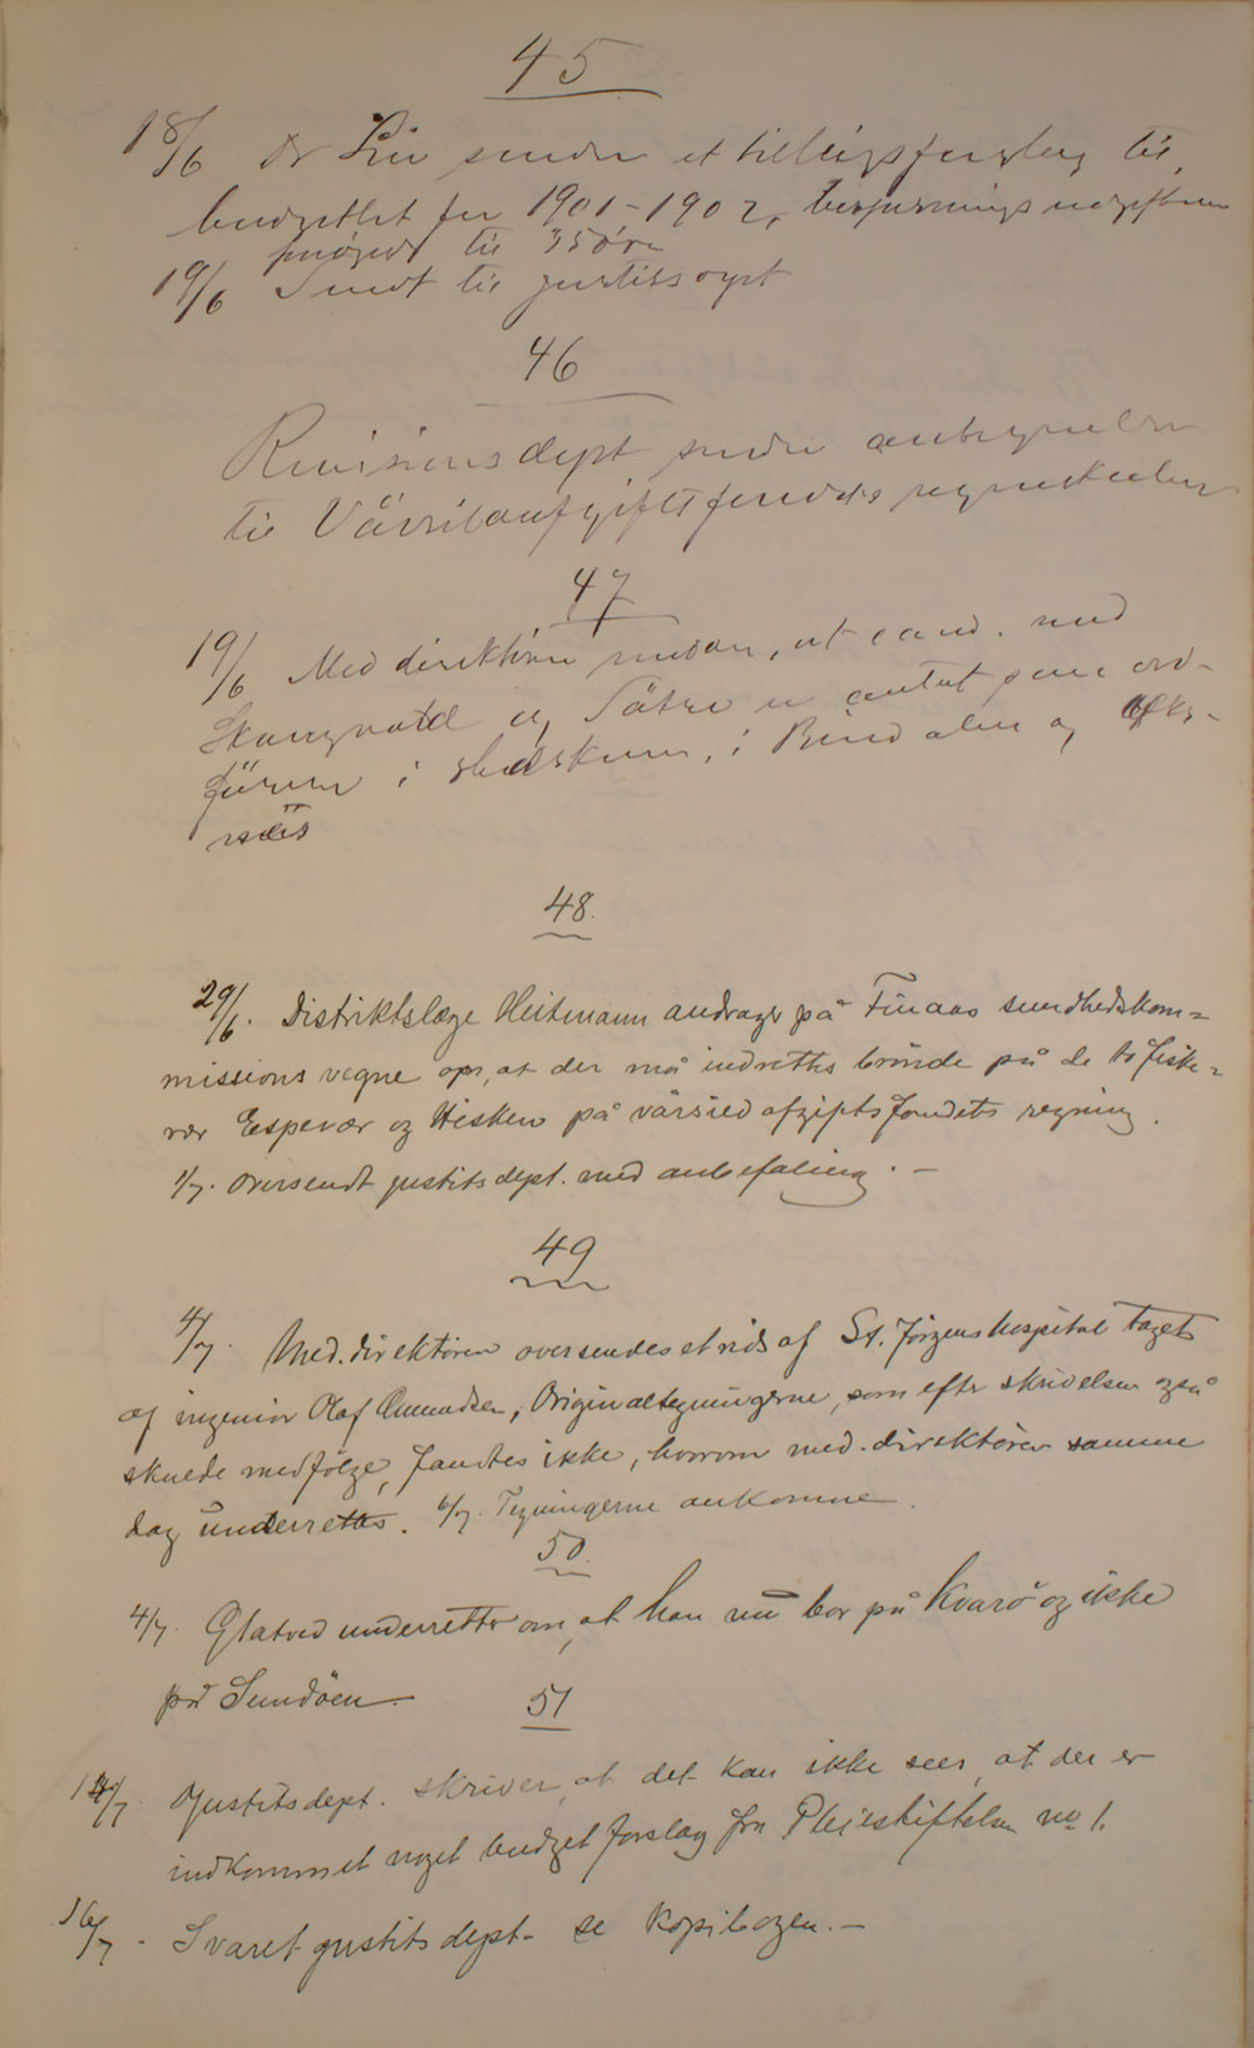 45
18/6 Dr Lie sender et tillægsforslag til
budgettet for 1901-1902, bespisningsudgifterne
forøget til 35 øre
19/6 Sendt til justitsdept
46
Revisionsdept sender antegnelser
til Vårsildafgiftsfondets regnskaber
47
19/6 Meddirektøren meddeler, at cand. med
og Sätre er antatt som ord-
förere i sundhedskomm. i Bindalen og
näs
48.
29/6. Distriktslæge Heitmann andrager på Finaas sundhedskom=
missions vegne om, at der må indrettes brönde på de to fiske=
vær Espevær og Hisken på vårsildafgiftsfondets regning.
1/7. Oversendt justitsdept. med anbefaling. —
49
4/7. Med.direktören oversendes et rids af St. Jörgens hospital taget
af ingeniör Olaf Amundsen, Originaltegningerne, som efter skrivelsen også
skulde medfölge, fandtes ikke, hvorom med.direktören samme
dag underrettes. 6/7. Tegningerne ankomne.
50.
4/7. Glatved underretter om, at han nu bor på Kvarö og ikke
på Sundöen.
51
14/7. Justitsdept. skriver, at det kan ikke sees, at der er
indkommet noget budgetforslag fra Pleiestiftelsen no 1.
16/7. Svaret justitsdept. se kopibogen. —